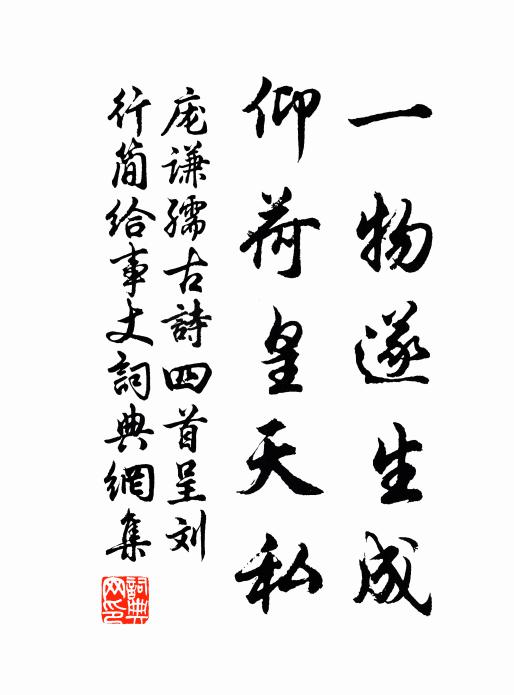 一物遂生成
仰荷皇天私
庞谦孺古詩四首呈刘
行简给事丈詞典網集
詞典網印